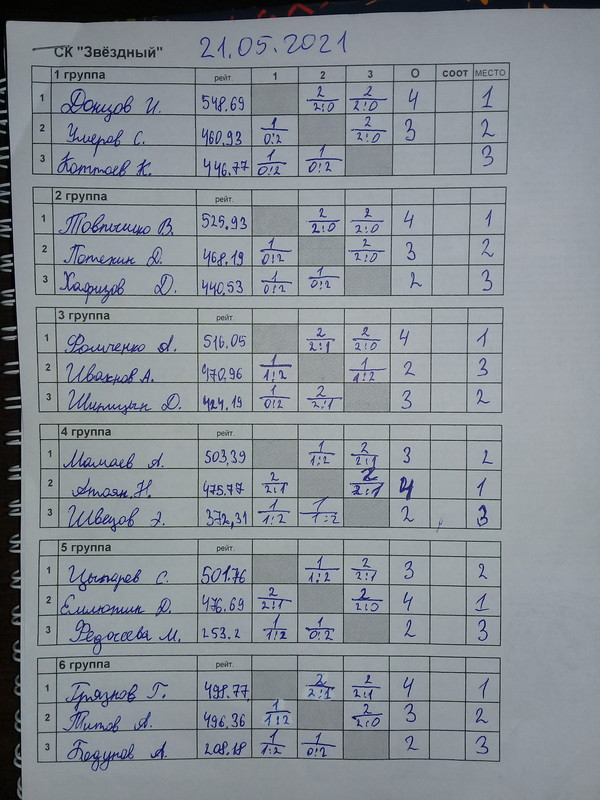 СК "Звёздный" 21.05.2021
1 группа рейт. 1 2 3 О СООТ МЕСТО
1 Донцов И. 548.69 2 2:0 2 2:0 4 1
2 Умеров С. 460.93 1 0:2 2 2:0 3 2
3 Коттоев К. 446.77 1 0:2 1 0:2 3
2 группа рейт.
1 В. 525.93 2 2:0 2 2:0 4 1
2 Потехин Д. 468.19 1 0:2 2 2:0 3 2
3 Хафизов Д. 440.53 1 0:2 1 0:2 2 3
3 группа рейт.
1 Фомченко А. 516.05 2 2:1 2 2:0 4 1
2 Ивахнов А. 470.96 1 1:2 1 1:2 2 3
3 Шипицын Д. 424.19 1 0:2 2 2:1 3 2
4 группа рейт.
1 Мамаев А. 503,39 1 1:2 2 2:1 3 2
2 Атоян Н. 475.77 2 2:1 2 2:1 4 1
3 Швецов Э. 372,31 1 1:2 1 1:2 2 3
5 группа рейт.
1 Цыпарев С. 501.76 1 1:2 2 2:1 3 2
2 Емлютин Д. 476.69 2 2:1 2 2:0 4 1
3 Федосеева М. 253.2 1 1:2 1 0:2 2 3
6 группа рейт.
1 Грязнов Г. 498.77 2 2:1 2 2:1 4 1
2 Титов А. 496.36 1 1:2 2 2:0 3 2
3 Бодунов А. 208.18 1 1:2 1 0:2 2 3